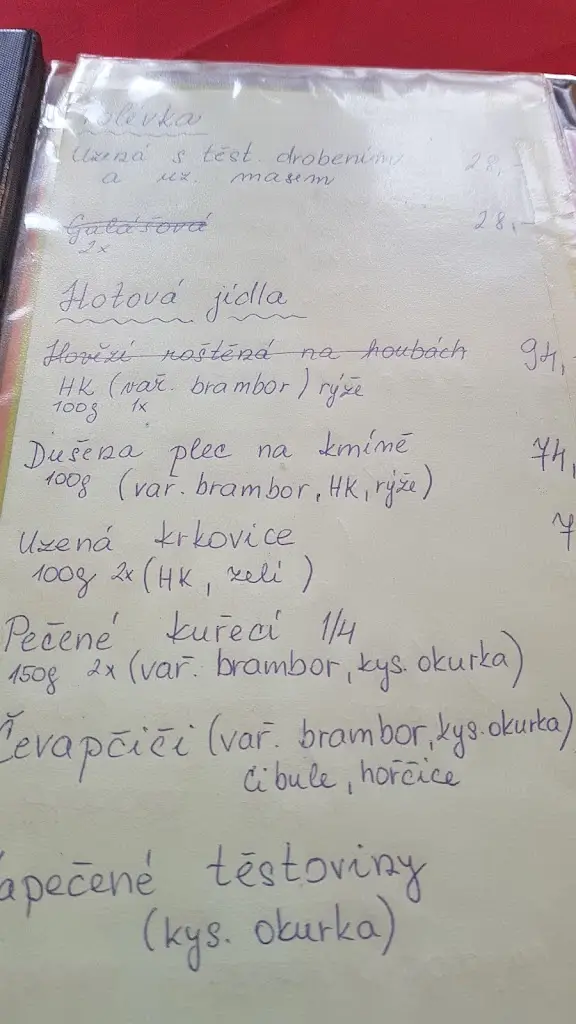 Polévka
Uzená s těst. drobením 28,-
a uz. masem
Gulášová 28,-
2x
Hotová jídla
Hovězí roštěná na houbách 94,-
HK (vař. brambor) rýže
100g 1x
Dušena plec na kmíně 74,
100g (vař. brambor, HK, rýže)
Uzená krkovice 7
100g 2x (HK, zelí)
Pečené kuřecí 1/4
150g 2x (vař. brambor, kys. okurka)
Čevapčiči (vař. brambor, kys. okurka)
cibule, hořčice
apečené těstoviny
(kys. okurka)